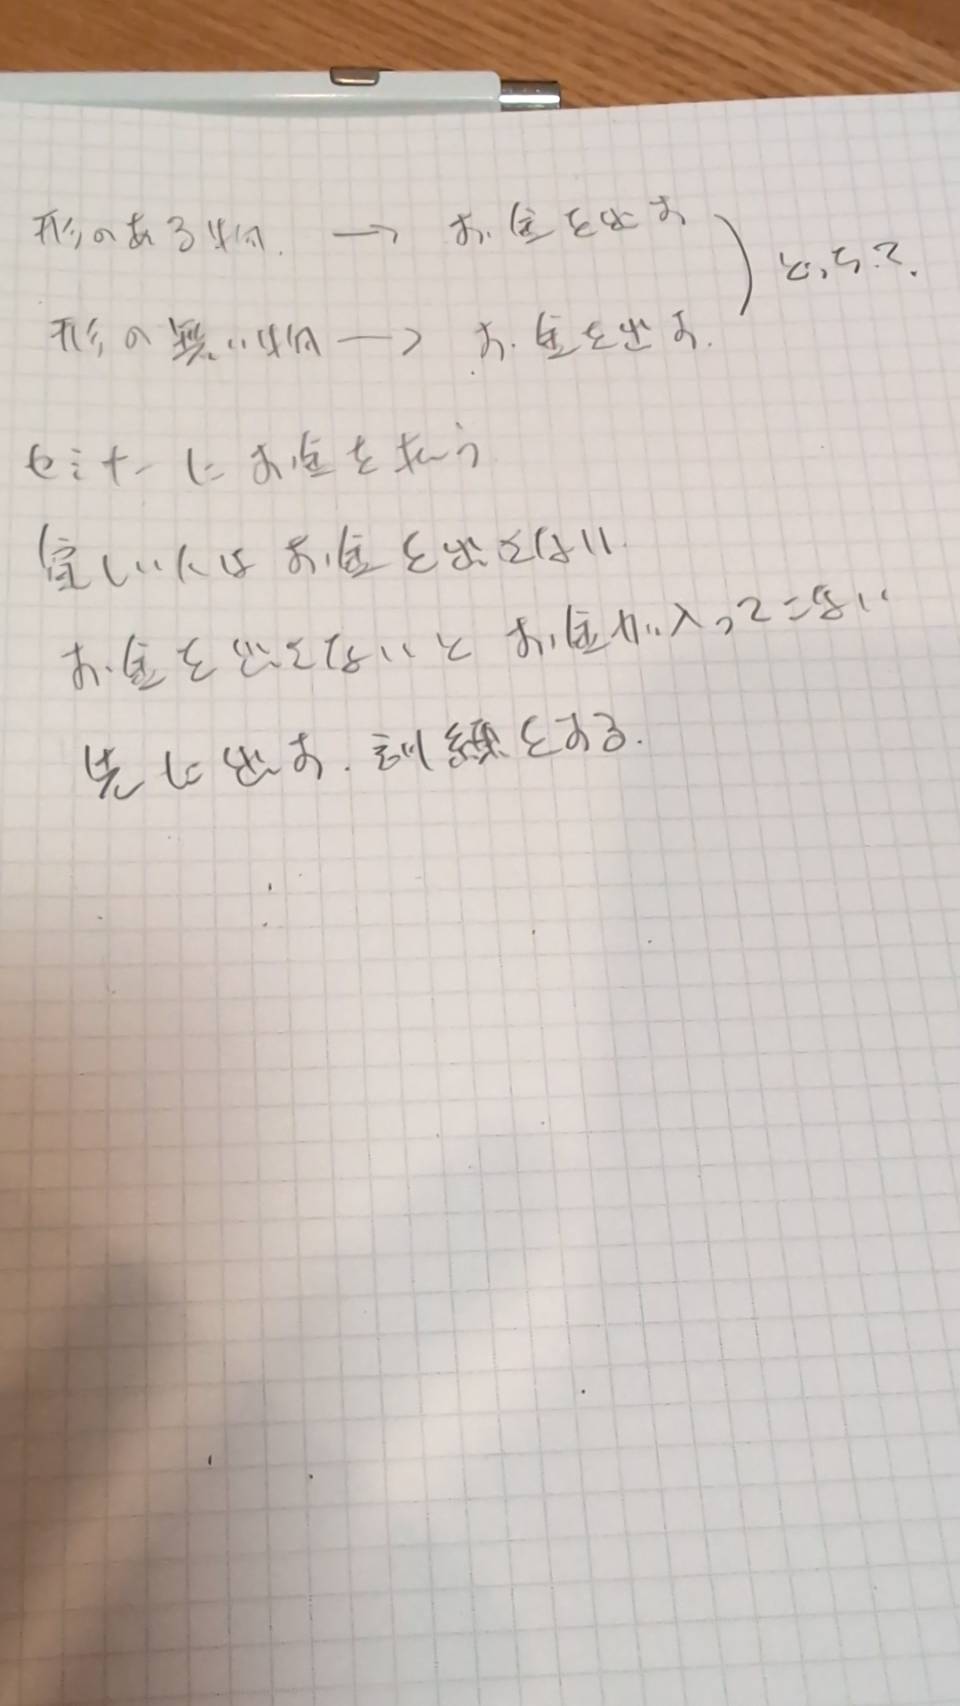 形のある物 → お金を出す
形の無い物 → お金を出す. ) どっち?
セミナーにお金を払う
貧しい人はお金を出せない
お金を出せないとお金が入ってこない
先に出す. 訓練をする.